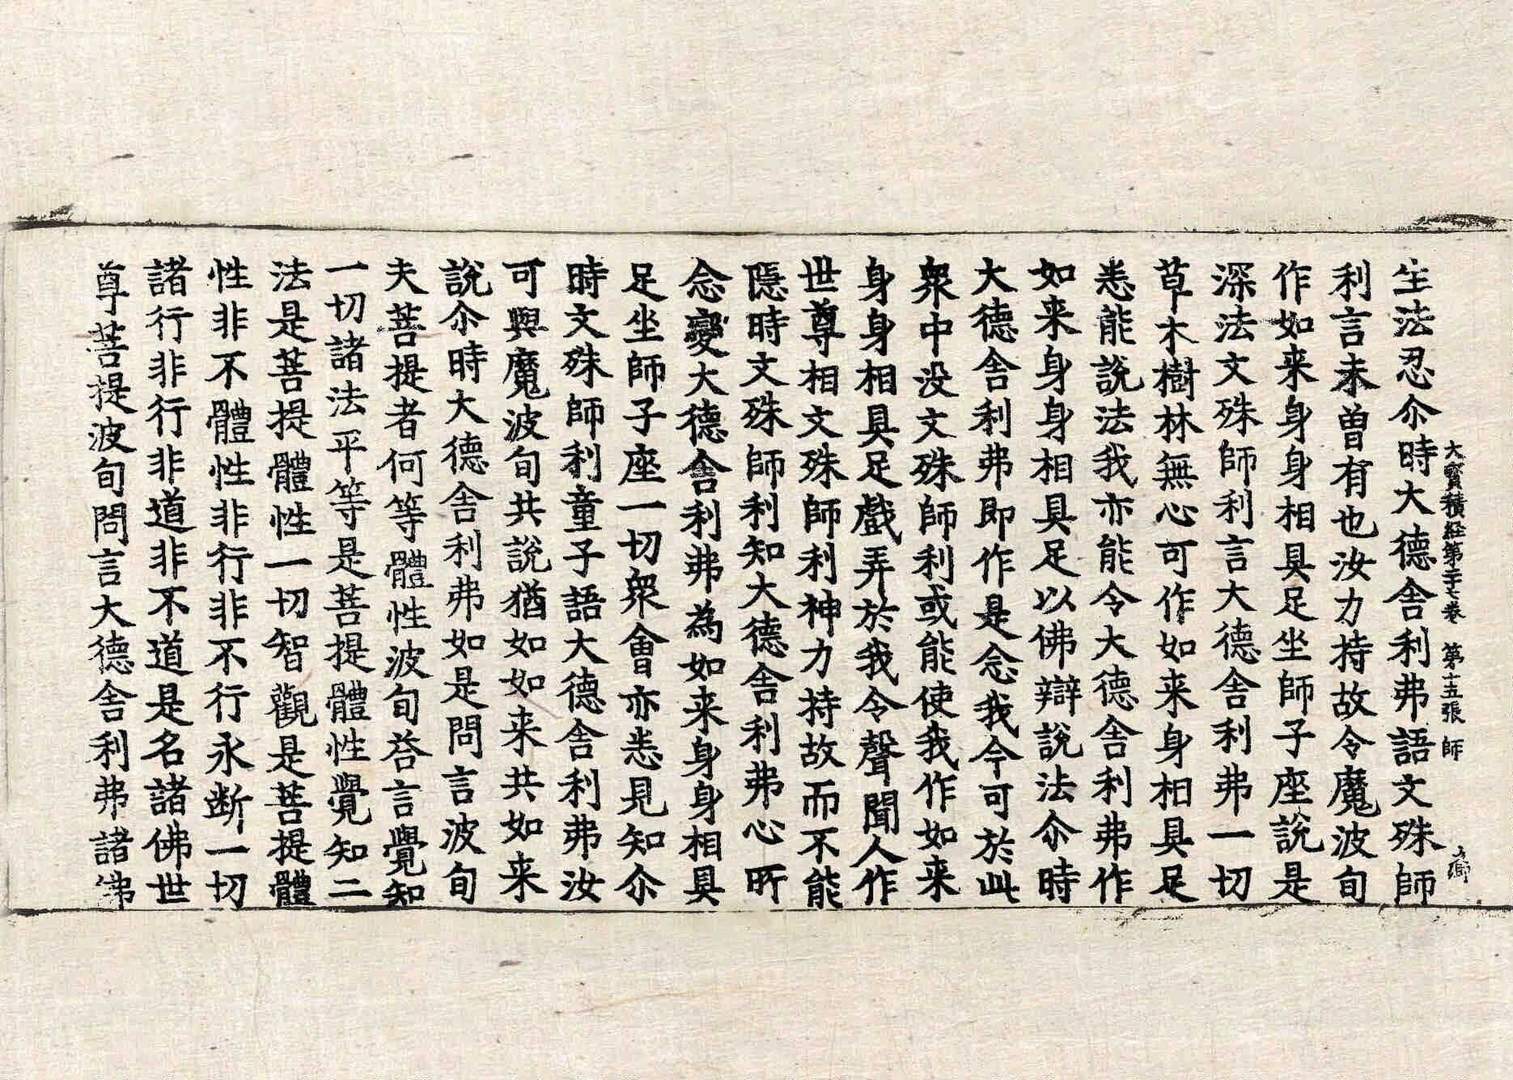 大寶積経第二十七卷 第十五張 師
生法忍尒時大德舍利弗語文殊師
利言未曾有也汝力持故令魔波旬
作如来身身相具足坐師子座說是
深法文殊師利言大德舍利弗一切
草木樹林無心可作如来身相具足
悉能說法我亦能令大德舍利弗作
如来身身相具足以佛辯說法尒時
大德舍利弗即作是念我今可於此
衆中没文殊師利或能使我作如来
身身相具足戲弄於我令聲聞人作
世尊相文殊師利神力持故而不能
隱時文殊師利知大德舍利弗心所
念變大德舍利弗為如来身身相具
足坐師子座一切衆會亦悉見知尒
時文殊師利童子語大德舍利弗汝
可與魔波旬共說猶如如来共如来
說尒時大德舍利弗如是問言波旬
夫菩提者何等體性波旬荅言覺知
一切諸法平等是菩提體性覺知二
法是菩提體性一切智觀是菩提體
性非不體性非行非不行永断一切
諸行非行非道非不道是名諸佛世
尊菩提波旬問言大德舍利弗諸佛